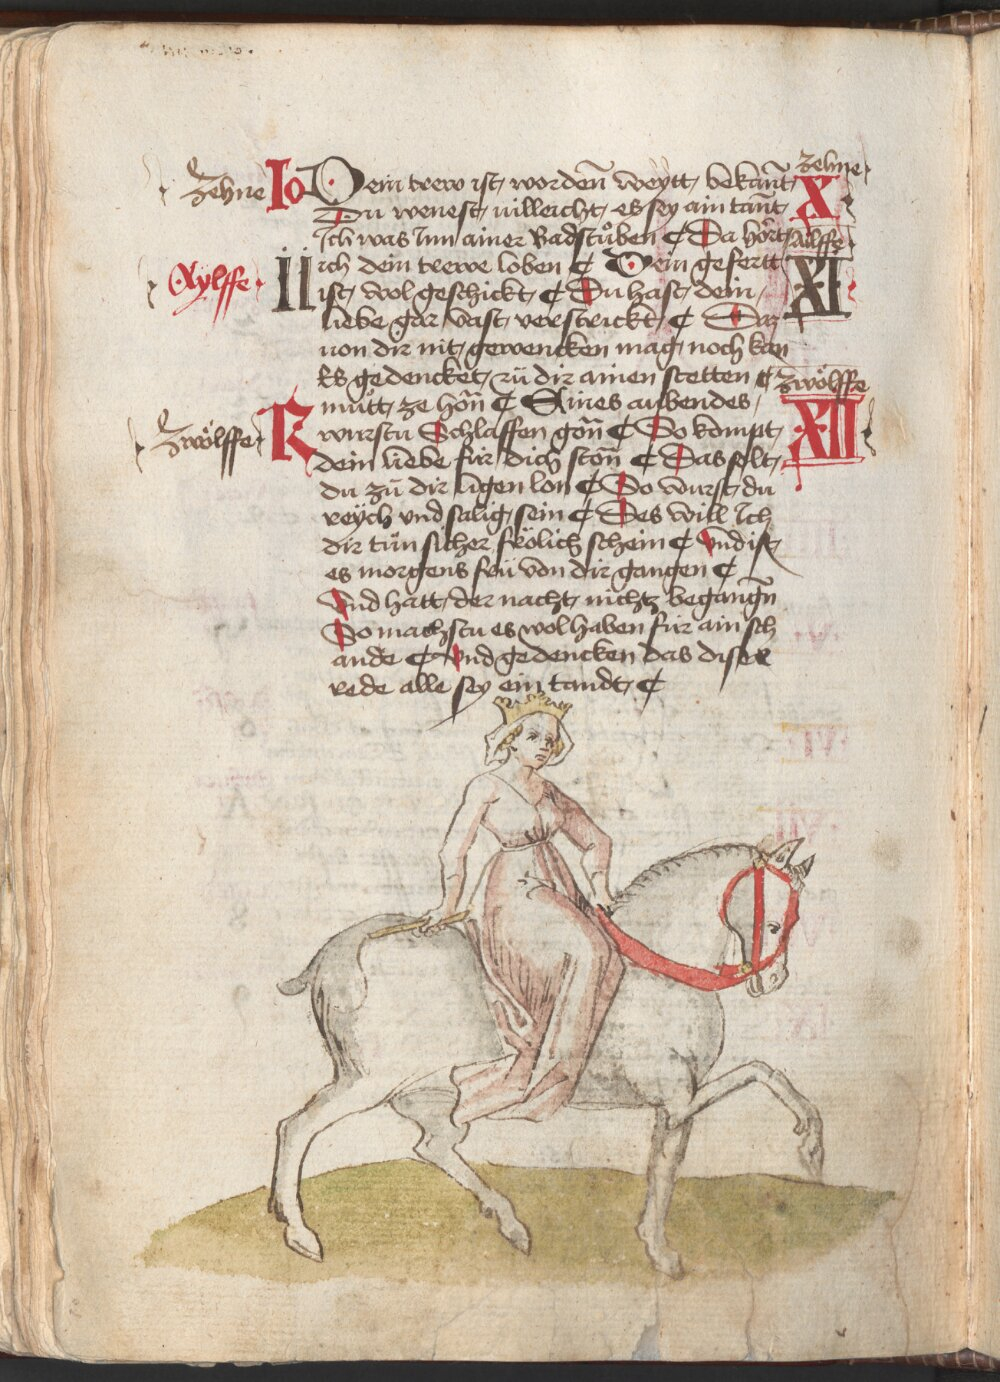 zehne 10 Dein trew ist worden̄ weytt bekan̄t zehne X
Du wenest villeicht es sey ain tan̄t
Ich was Inn ainer Badstůben ¢ Da hört Ailffe
Aylffe 11 ich dein trewe loben ¢ Dein gefertt XI
ist wol geschickt ¢ Du hast dein
liebe gar vast verstrickt ¢ Daz
von dir nit gewencken mag noch kan
Es gedencket zů dir ainen stetten ¢ zwölffe
můtt ze hon̄ ¢ Aines aubendes
zwölffe 12 wurstu Schlaffen gon̄ ¢ So kompt XII
dein liebe für dich ston̄ ¢ Das solt
du zů dir ligen lon ¢ So wurst du
reych vnd sälig sein ¢ Des will Ich
dir tůn sicher frölich schein ¢ Vnd ist
es morgens frü von dir gangen ¢
Vnd hatt der nacht nichtz begangn̄
So machstu es wol haben für ain sch
ande ¢ Vnd gedencken das diser
rede alle sey ein tandt ¢